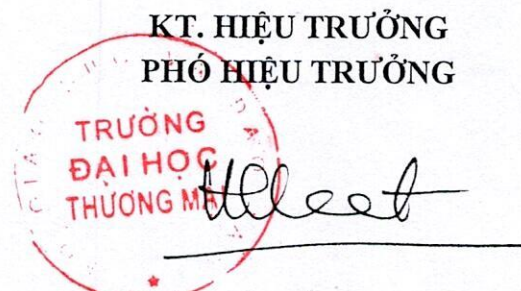 KT. HIỆU TRƯỞNG
PHÓ HIỆU TRƯỞNG
TRƯỜNG
ĐẠI HỌC
THƯƠNG MẠI